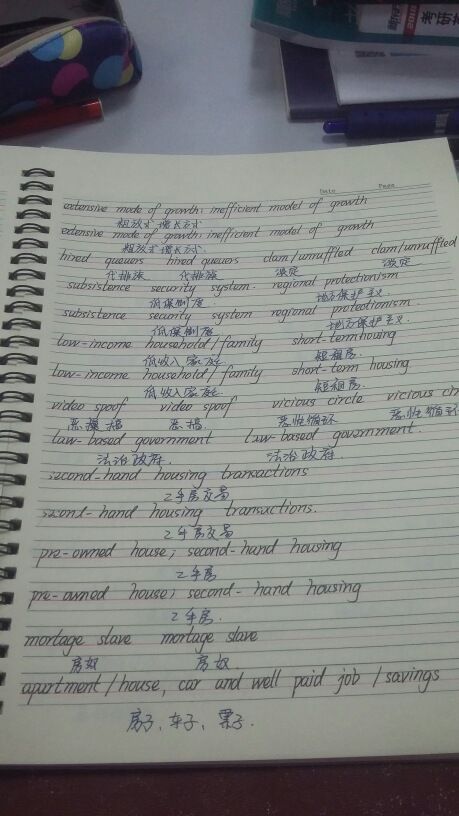 考研
Date Page
extensive mode of growth; inefficient model of growth
粗放式增长方式
extensive mode of growth; inefficient model of growth
粗放式增长方式.
hired queuers hired queuers clam/unruffled clam/unruffled
代排族 代排族 淡定 淡定
subsistence security system. regional protectionism
低保制度 地方保护主义
subsistence security system regional protectionism.
低保制度 地方保护主义.
low-income household/family short-term houing
低收入家庭. 短租房.
low-income household/family short-term housing
低收入家庭. 短租房.
video spoof video spoof vicious circle vicious circ
恶搞 恶性循环 恶性循环
law-based government law-based government.
法治政府. 法治政府.
second-hand housing transactions
2手房交易
second-hand housing transactions.
2手房交易
pre-owned house; second-hand housing
2手房
pre-owned house; second-hand housing
2手房.
mortage slave mortage slave
房奴 房奴
apartment/house, car and well paid job/savings
房子、车子、票子.